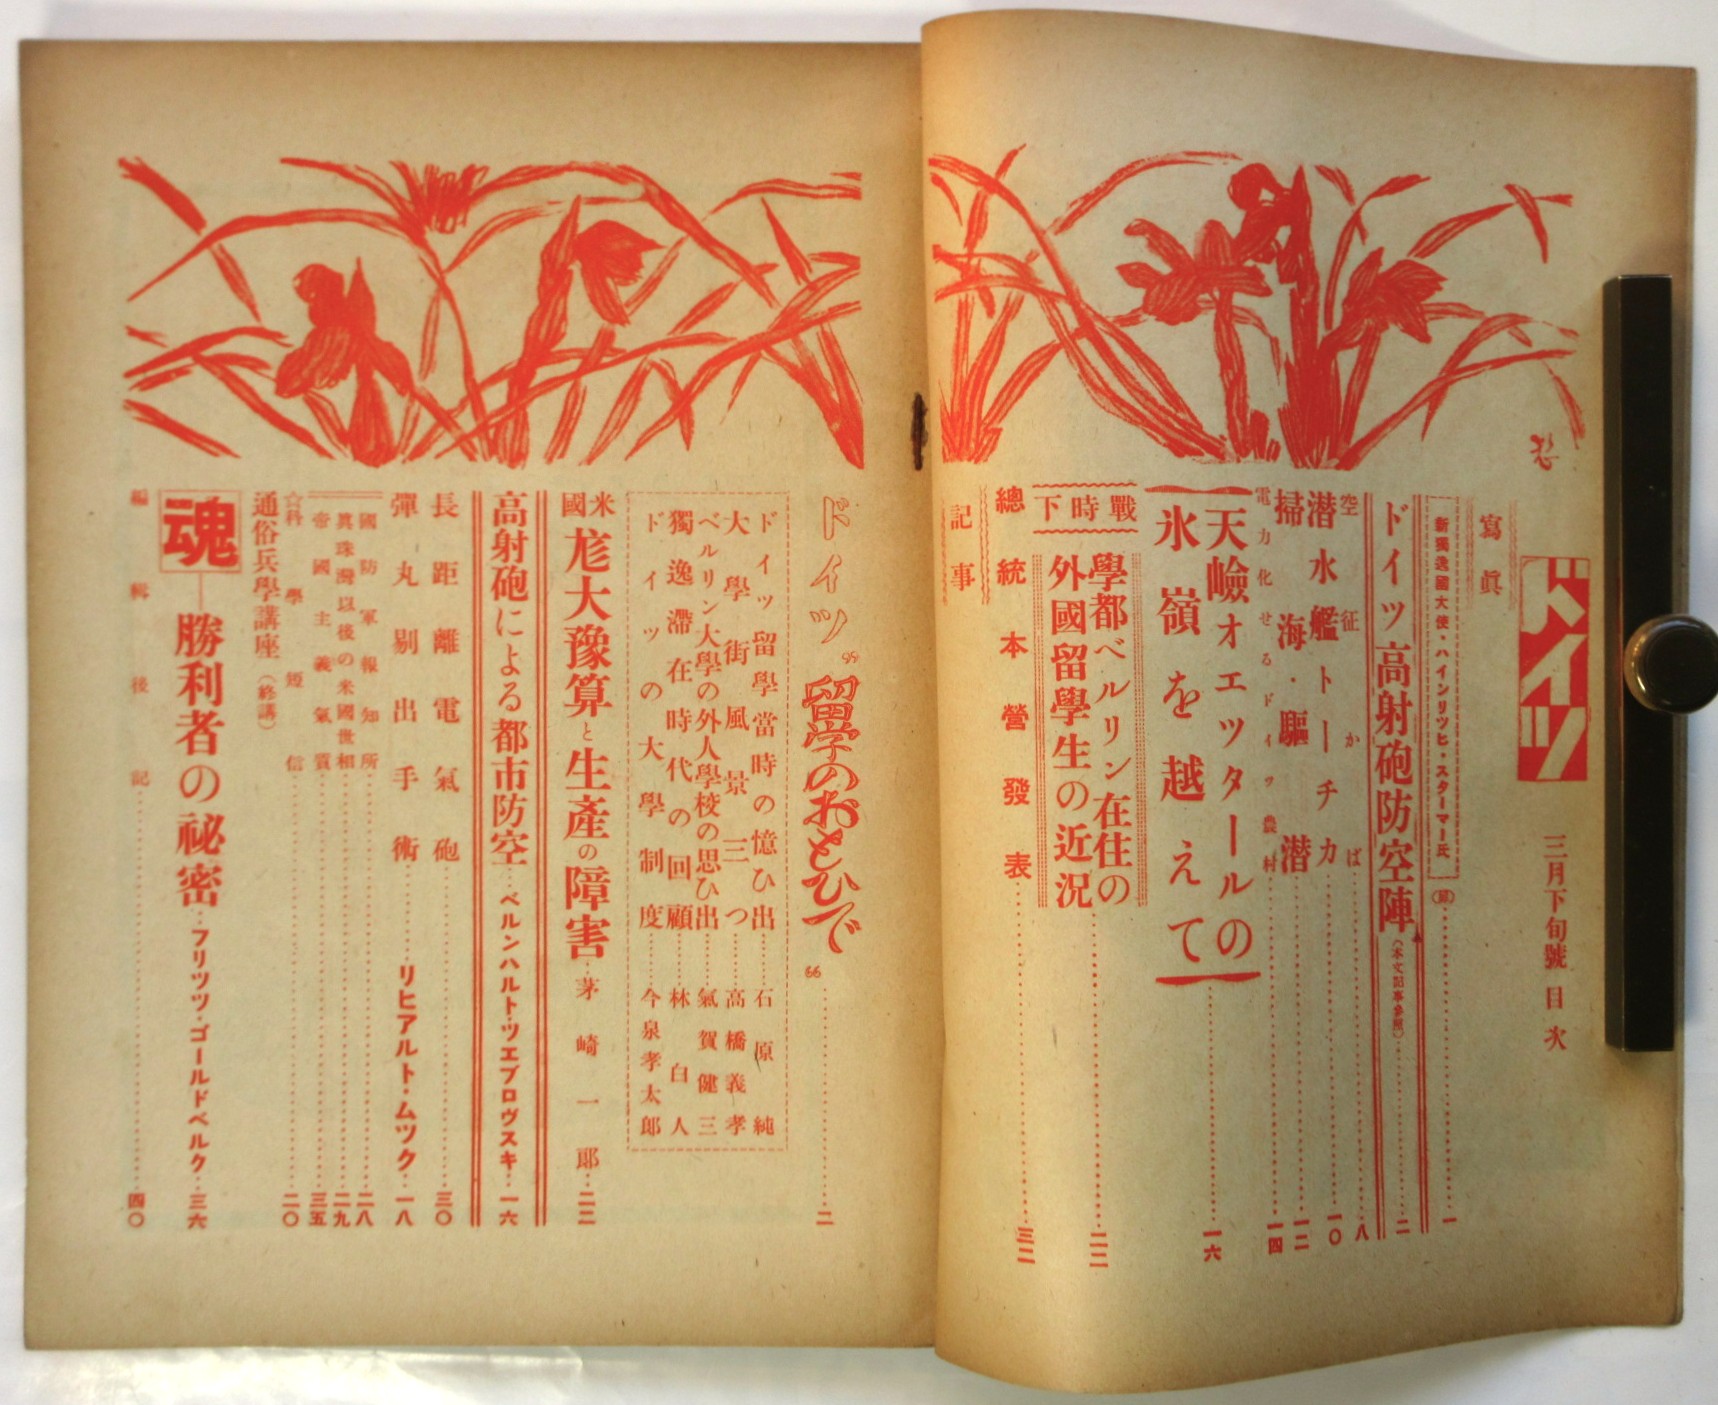 ドイツ
三月下旬號 目次
寫眞
新獨逸國大使・ハインリツヒ・スターマー氏…一
ドイツ高射砲防空陣(本文記事參照)…二
空征かば…八
潜水艦トーチカ…一〇
掃海・驅潜…一二
電力化せるドイツ農村…一四
天嶮オエツタールの
氷嶺を越えて…一六
戰時下
學都ベルリン在住の
外國留學生の近況…二二
總統本營發表…三二
記事
ドイツ“留学のおもひで”…二
ドイツ留學當時の憶ひ出…石原純
大學街風景三つ…高橋義孝
ベルリン大學の外人學校の思ひ出…氣賀健三
獨逸滯在時代の回顧…林白人
ドイツの大學制度…今泉孝太郎
米國 尨大豫算と生產の障害…茅崎一郎…二二
高射砲による都市防空…ベルンハルト・ツエブロヴスキ…一六
長距離電氣砲…三〇
彈丸剔出手術…リヒアルト・ムツク…一八
國防軍報知所…二八
眞珠灣以後の米國世相…二九
帝國主義氣質…三五
☆科學短信…二〇
通俗兵學講座(終講)
魂―勝利者の祕密…フリツツ・ゴールドベルク…三六
編輯後記…四〇